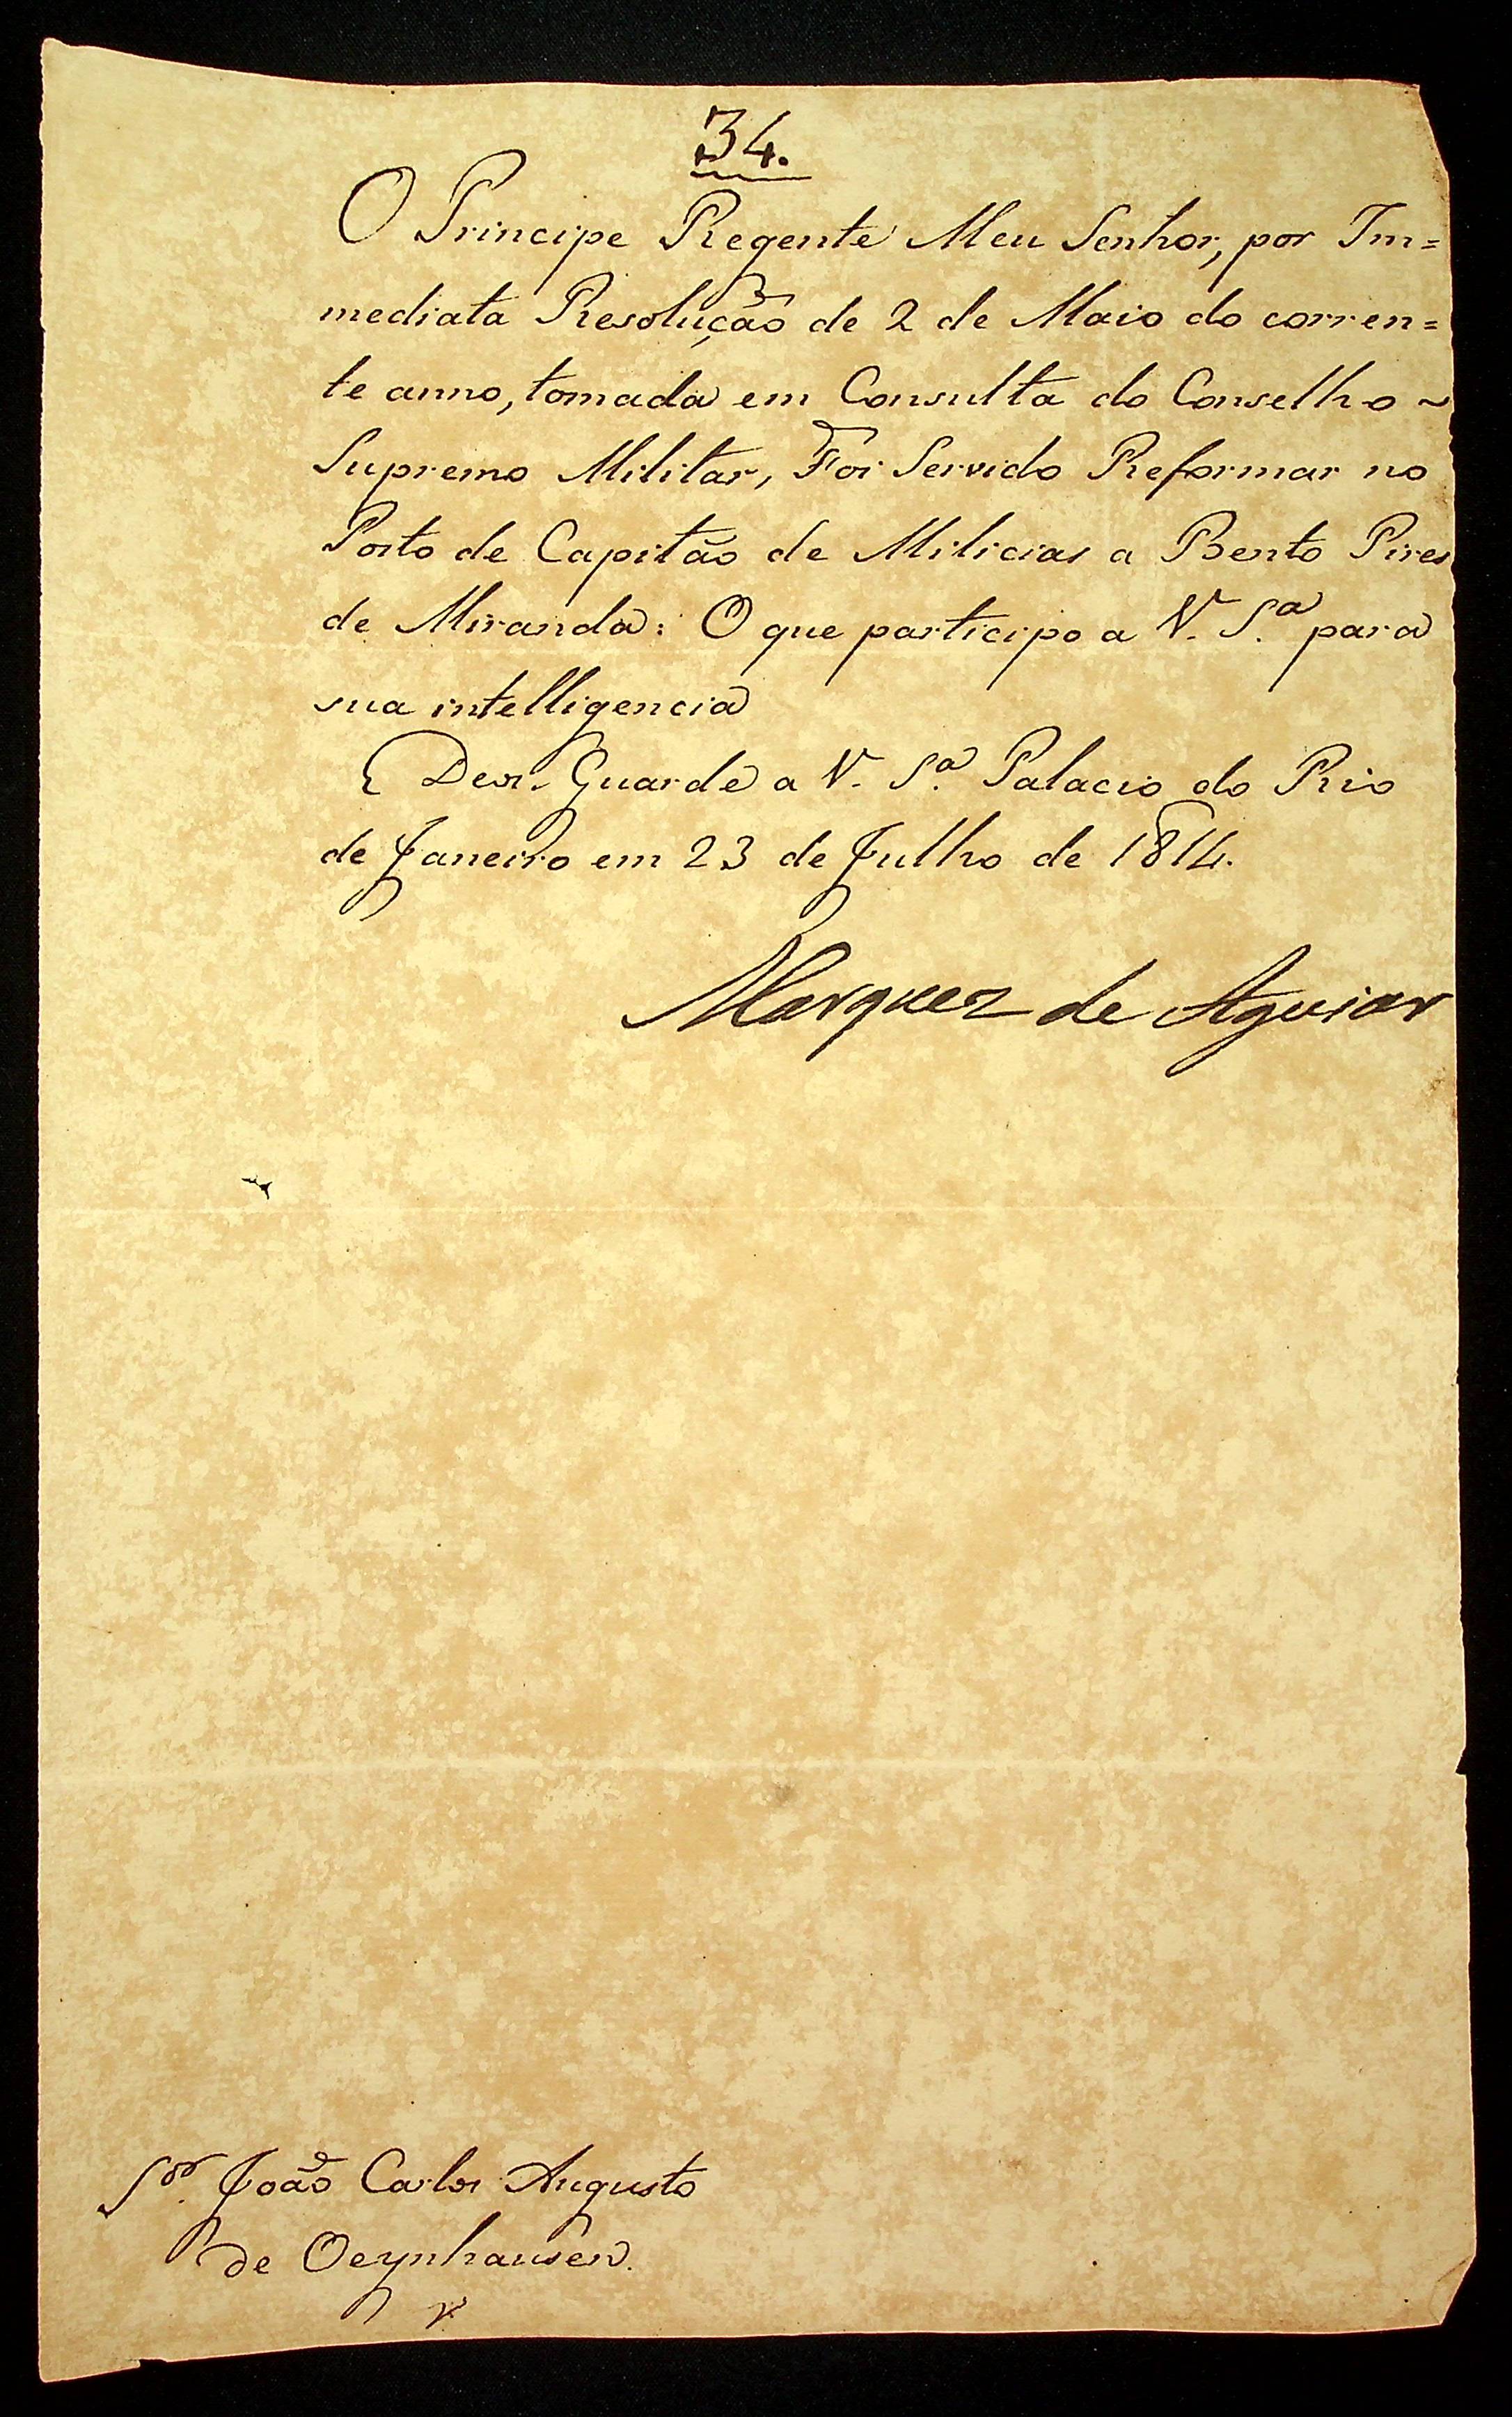 34.
O Principe Regente Meu Senhor, por Im=
mediata Resolução de 2 de Maio do corren=
te anno, tomada em Consulta do Conselho ~
Supremo Militar, Foi Servido Reformar no
Posto de Capitão de Milicias a Bento Pires
de Miranda: O que participo a V. S.ª para
sua intelligencia
Deos Guarde a V. S.ª Palacio do Rio
de Janeiro em 23 de Julho de 1814.
Marquez de Aguiar
Sor. João Carlos Augusto
de Oeynhausen.